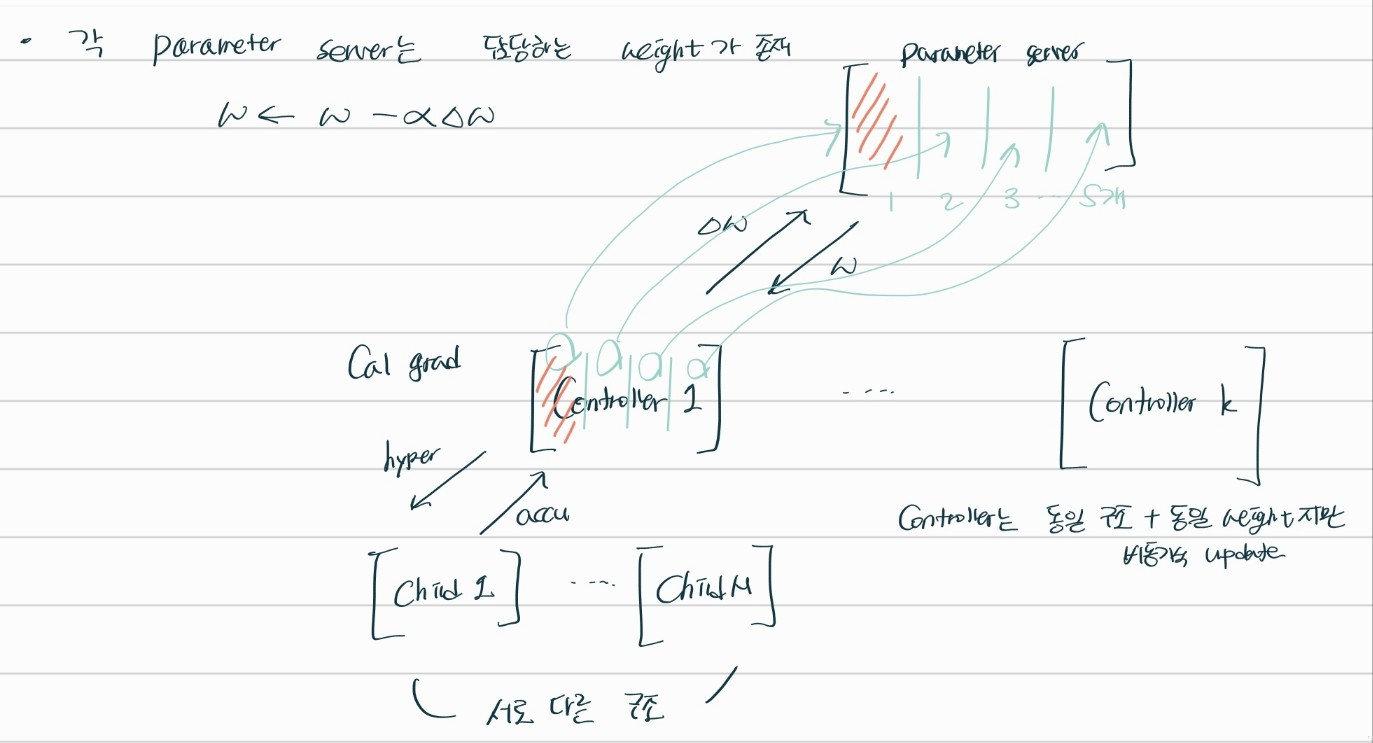 • 각 parameter server는 담당하는 weight가 존재
w ← w - α△w
parameter server
1 2 3 ... S개
△w
w
Cal grad
Controller 1
....
Controller k
hyper
accu
Controller는 동일 구조 + 동일 weight지만
비동기식 update
Child 1
....
Child M
서로 다른 구조